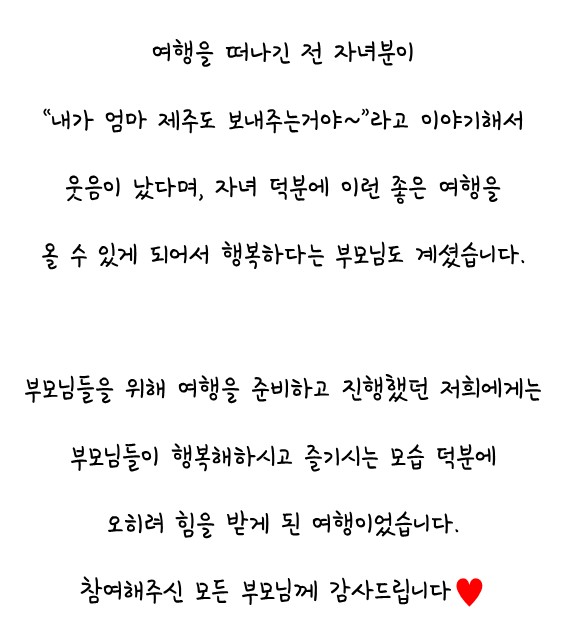 여행을 떠나긴 전 자녀분이
“내가 엄마 제주도 보내주는거야~”라고 이야기해서
웃음이 났다며, 자녀 덕분에 이런 좋은 여행을
올 수 있게 되어서 행복하다는 부모님도 계셨습니다.
부모님들을 위해 여행을 준비하고 진행했던 저희에게는
부모님들이 행복해하시고 즐기시는 모습 덕분에
오히려 힘을 받게 된 여행이었습니다.
참여해주신 모든 부모님께 감사드립니다♥